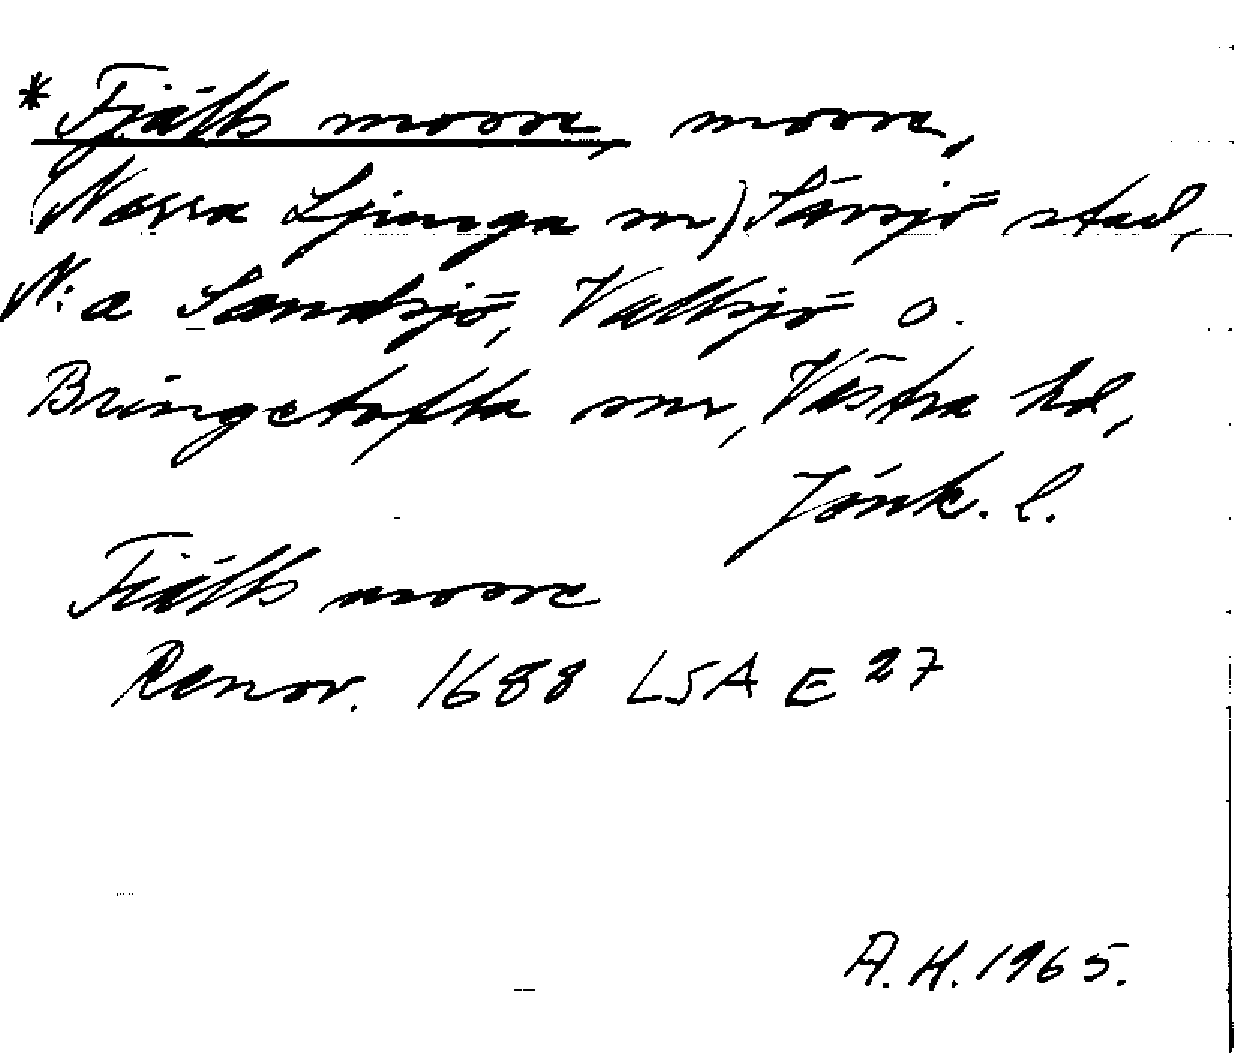 *Fjälls mosse, mosse,
(Norra Ljunga sn) Sävsjö stad,
N:a Sandsjö, Vallsjö o.
Bringetofta snr, Västra hd,
Jönk. l.
Fiälls mosse
Renov. 1688 LSA E 27
A.H. 1965.